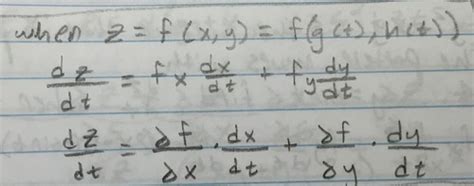 when z = f(x,y) = f(g(t), h(t))
dz/dt = fx dx/dt + fy dy/dt
dz/dt = ∂f/∂x · dx/dt + ∂f/∂y · dy/dt